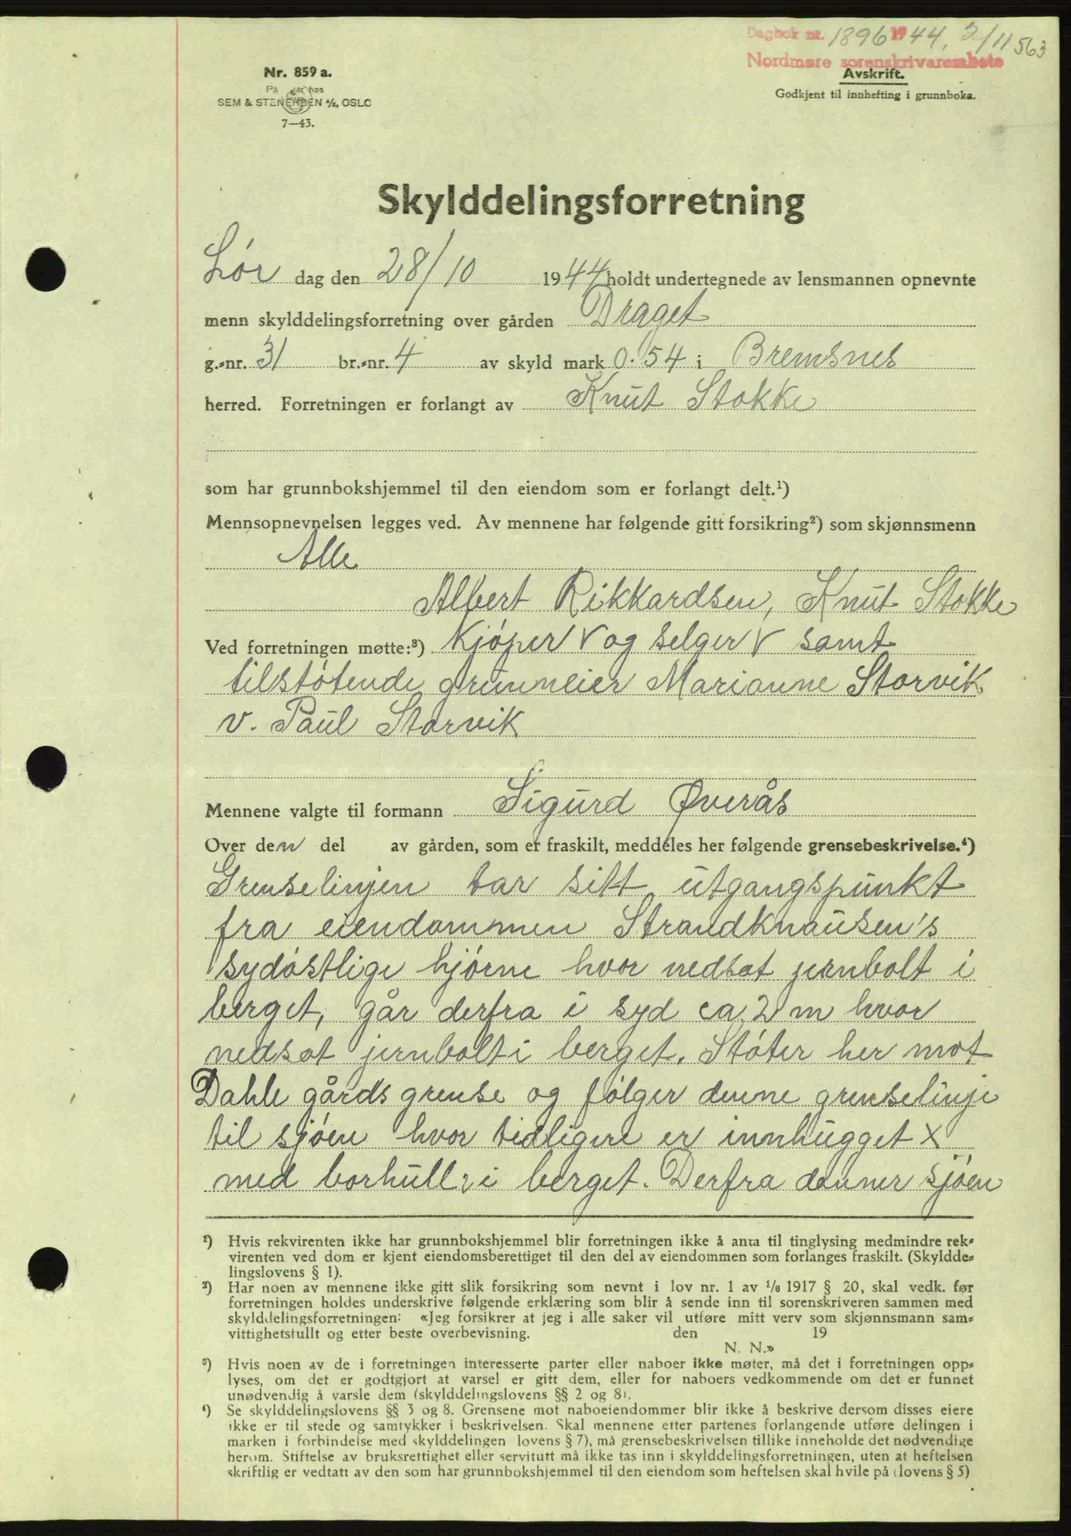 Dagbok nr. 1896 1944, 2/11 563
Nordmøre sorenskrivarembete
Nr. 859 a.
På hos
SEM & STENERSEN A/S, OSLO
7—43.
Avskrift.
Godkjent til innhefting i grunnboka.
Skylddelingsforretning
Lør dag den 28/10 1944 holdt undertegnede av lensmannen opnevnte
menn skylddelingsforretning over gården Draget
g.-nr. 31 br.-nr. 4 av skyld mark 0.54 i Bremsnes
herred. Forretningen er forlangt av Knut Stokke
som har grunnbokshjemmel til den eiendom som er forlangt delt.¹)
Mennsopnevnelsen legges ved. Av mennene har følgende gitt forsikring²) som skjønnsmenn
Alle
Albert Rikkardsen, Knut Stokke
Ved forretningen møtte:³) Kjøper √ og selger √ samt
tilstøtende grunneier Marianne Storvik
v. Paul Storvik
Mennene valgte til formann Sigurd Øverås
Over den del av gården, som er fraskilt, meddeles her følgende grensebeskrivelse.⁴)
Grenselinjen tar sitt utgangspunkt
fra eiendommen Strandknausen's
sydøstlige hjørne hvor nedsat jernbolt i
berget, går derfra i syd ca. 2 m hvor
nedsat jernbolt i berget. Støter her mot
Dahle gårds grense og følger denne grenselinje
til sjøen hvor tidligere er innhugget X
med borhull i berget. Derfra danner sjøen
¹) Hvis rekvirenten ikke har grunnbokshjemmel blir forretningen ikke å anta til tinglysing medmindre rek-
virenten ved dom er kjent eiendomsberettiget til den del av eiendommen som forlanges fraskilt. (Skyldde-
lingslovens § 1).
²) Har noen av mennene ikke gitt slik forsikring som nevnt i lov nr. 1 av 1/6 1917 § 20, skal vedk. før
forretningen holdes underskrive følgende erklæring som blir å sende inn til sorenskriveren sammen med
skylddelingsforretningen: «Jeg forsikrer at jeg i alle saker vil utføre mitt verv som skjønnsmann sam-
vittighetsfullt og etter beste overbevisning. den 19
N. N.»
³) Hvis noen av de i forretningen interesserte parter eller naboer ikke møter, må det i forretningen opp-
lyses, om det er godtgjort at varsel er gitt dem, eller for naboers vedkommende om det er funnet
unødvendig å varsle dem (skylddelingslovens §§ 2 og 8).
⁴) Se skylddelingslovens §§ 3 og 8. Grensene mot naboeiendommer blir ikke å beskrive dersom disses eiere
ikke er til stede og samtykker i beskrivelsen. Skal mennene etter partenes forlangende utføre delingen i
marken i forbindelse med skylddelingen (lovens § 7), må grensebeskrivelsen tillike inneholde det nødvendige
herom. Stiftelse av bruksrettighet eller servitutt må ikke tas inn i skylddelingsforretningen, uten at heftelsen
skriftlig er vedtatt av den som har grunnbokshjemmel til den eiendom som heftelsen skal hvile på (lovens § 5)